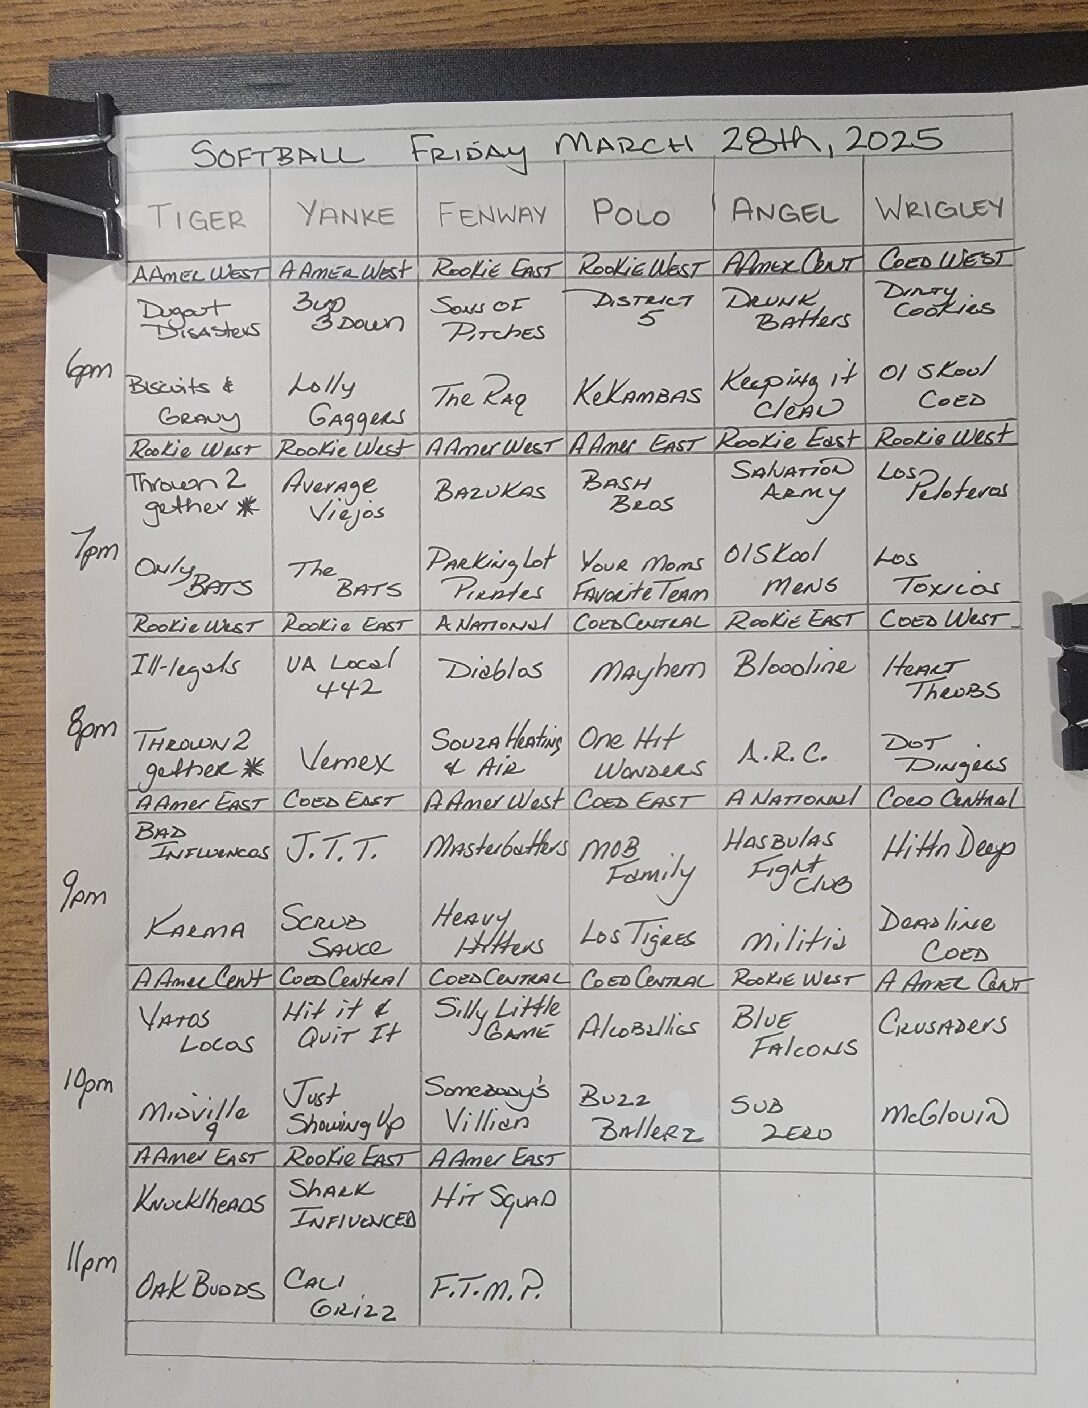 SOFTBALL FRIDAY MARCH 28th, 2025
TIGER YANKE FENWAY POLO ANGEL WRIGLEY
A AMER WEST A AMER WEST ROOKIE EAST ROOKIE WEST A AMER CENT COED WEST
Dugout 3up SONS OF DISTRICT DRUNK DIRTY
DISASTERS 3 DOWN PITCHES 5 BATTERS COOKIES
6pm
BISCUITS & Lolly The RAQ KEKAMBAS Keeping it Ol SKool
GRAVY GAGGERS CLEAN COED
Rookie West Rookie West A Amer West A Amer EAST Rookie East Rookie West
Thrown 2 Average BAZUKAS BASH SALVATION LOS
gether * Viejos BROS ARMY Peloteros
7pm
Only The Parking Lot Your Moms Ol SKool Los
BATS BATS Pirates FAVORITE TEAM MENS TOXICOS
ROOKIE WEST ROOKIE EAST A NATIONAL COED CENTRAL ROOKIE EAST COED WEST
Ill-legals UA Local Diablos Mayhem Bloodline HEART
442 THROBS
8pm
THROWN 2 Vemex SOUZA HEATING One Hit A.R.C. DOT
gether * & AIR WONDERS DINGERS
A AMER EAST COED EAST A AMER West COED EAST A NATIONAL COED CENTRAL
BAD J.T.T. Masterbatters MOB HASBULAS Hittn Deep
INFLUENCOS Family Fight
CLUB
9pm
KARMA SCRUB HEAVY LOS TIGRES militia DEADLINE
SAUCE HITTERS COED
A AMER CENT COED CENTRAL COED CENTRAL COED CENTRAL ROOKIE WEST A AMER CENT
VATOS Hit it & Silly Little Alcoballics BLUE CRUSADERS
LOCOS QUIT It GAME FALCONS
10pm
MIDVILLE Just Somebody's BUZZ SUB McGLOVIN
9 Showing Up Villian BALLERZ ZERO
A AMER EAST ROOKIE EAST A AMER EAST
KNUCKlheADS SHARK HIT SQUAD
INFLUENCED
11pm
OAK BUDDS CALI F.T.M.P.
GRIZZ